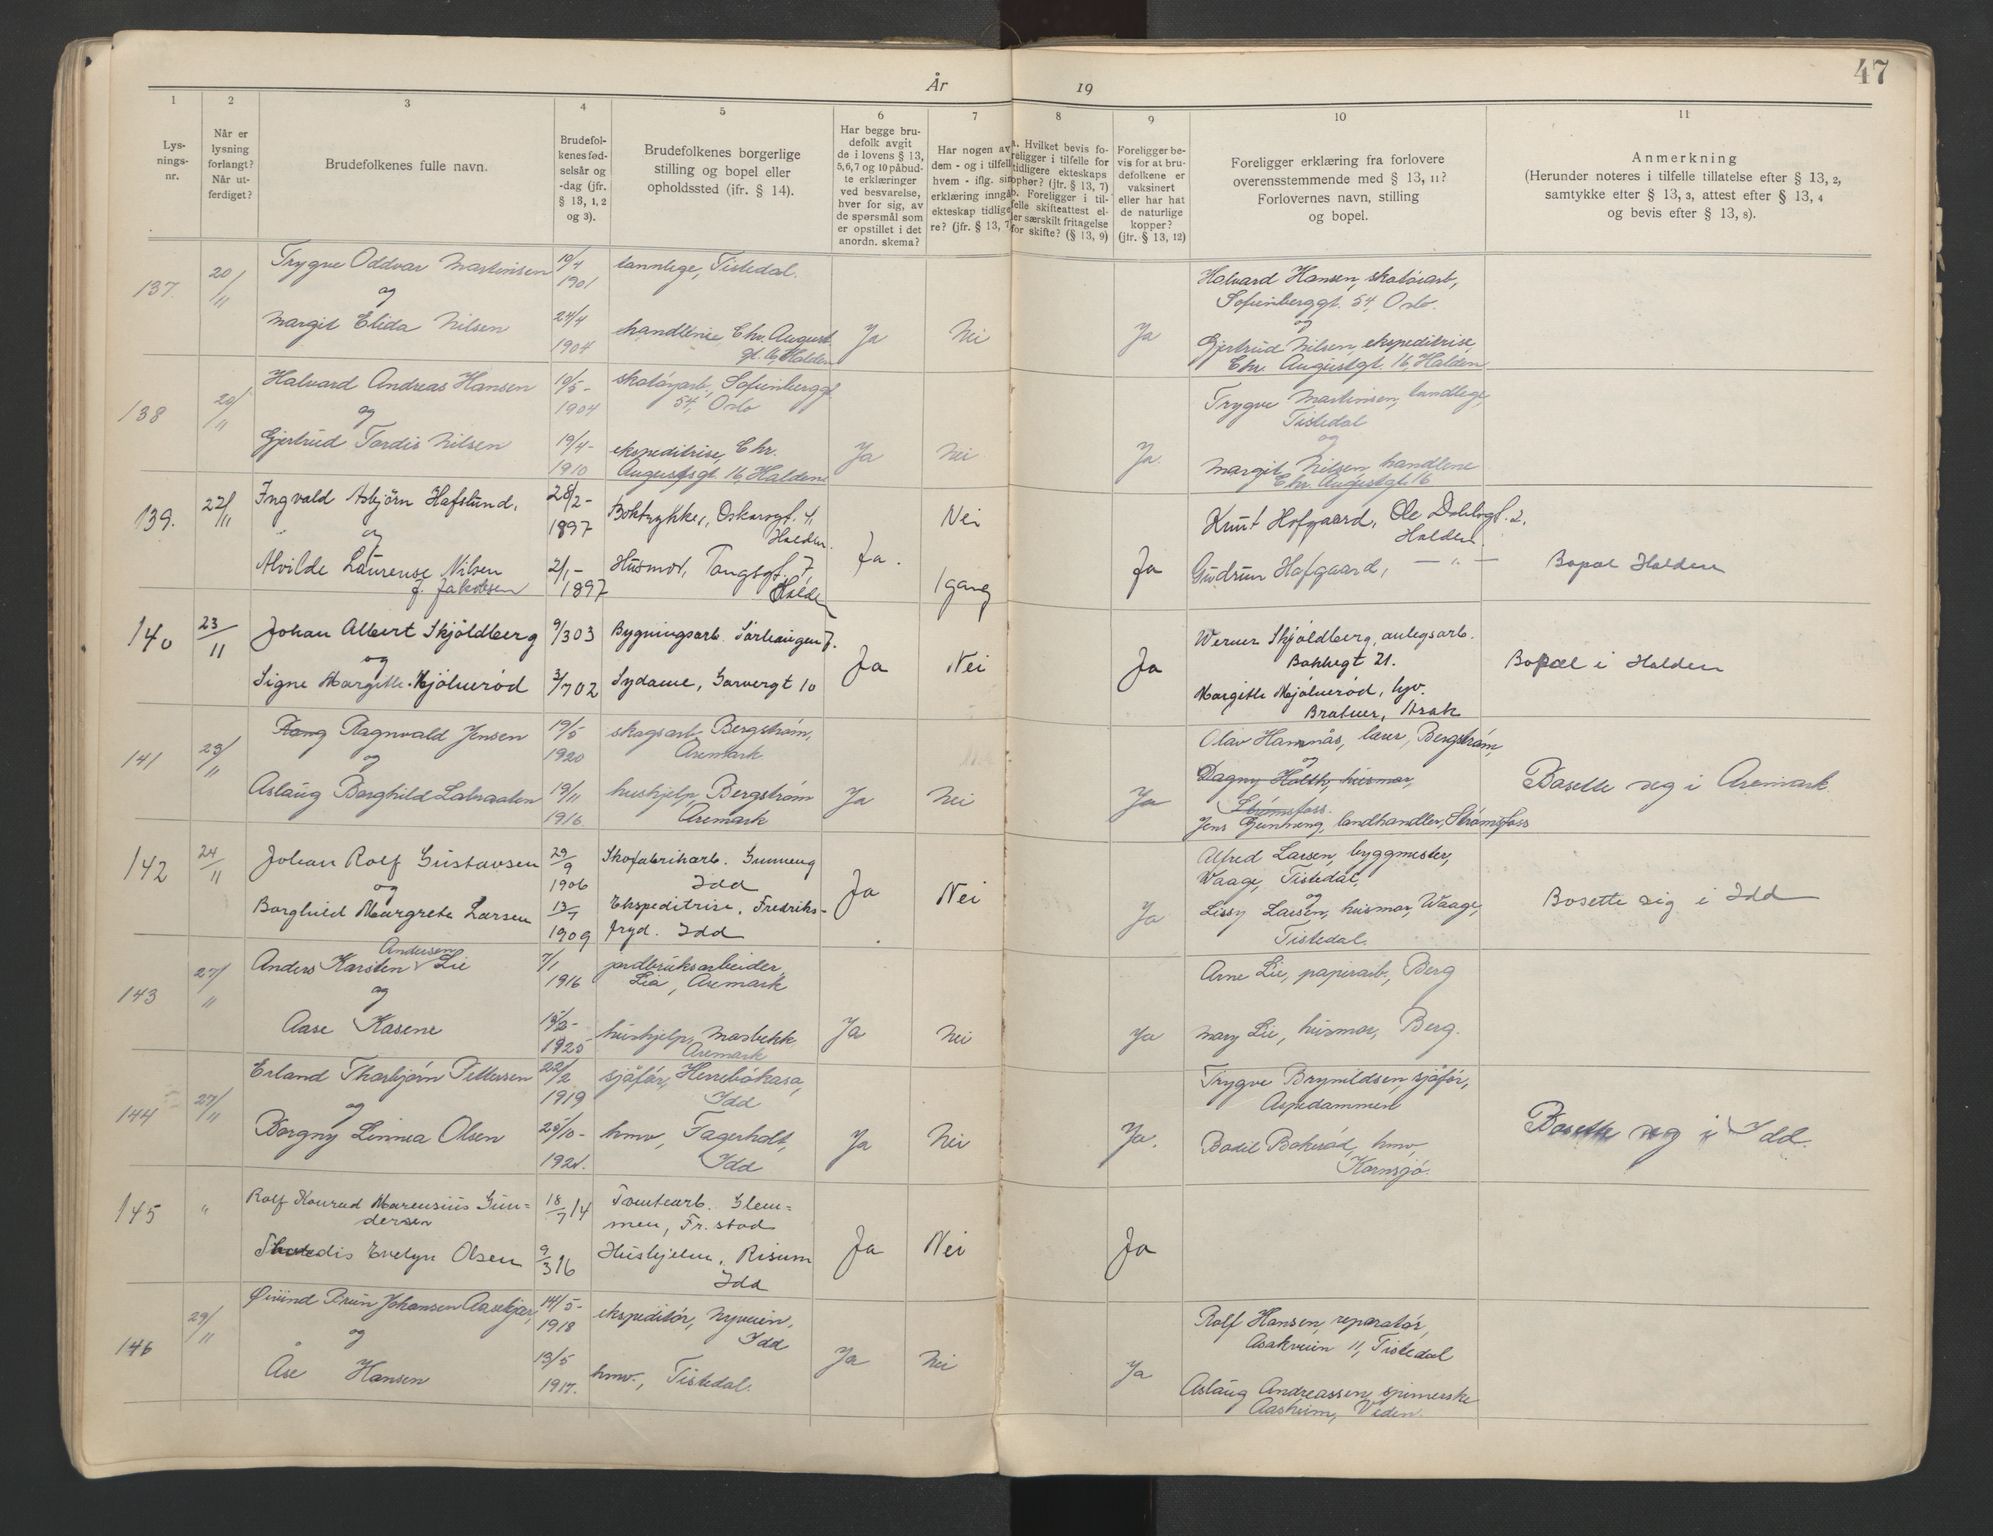 47
År 19
1 2 3 4 5 6 7 8 9 10 11
Lys-
nings-
nr.
Når er
lysning
forlangt?
Når ut-
ferdiget?
Brudefolkenes fulle navn.
Brudefol-
kenes fød-
selsår og
-dag (jfr.
§ 13, 1, 2
og 3).
Brudefolkenes borgerlige
stilling og bopel eller
opholdssted (jfr. § 14).
Har begge bru-
defolk avgit
de i lovens § 13,
5,6,7 og 10 påbud-
te erklæringer
ved besvarelse,
hver for sig, av
de spørsmål som
er opstillet i det
anordn. skema?
Har nogen av
dem - og i tilfelle
hvem - iflg. sin
erklæring inngå
ekteskap tidlige
re? (jfr. § 13, 7
a. Hvilket bevis fo-
religger i tilfelle for
tidligere ekteskaps
ophør? (jfr. § 13, 7)
b. Foreligger i til-
felle skifteattest el-
ler særskilt fritagelse
for skifte? (§ 13, 9)
Foreligger be-
vis for at bru-
defolkene er
vaksinert
eller har hat
de naturlige
kopper?
(jfr. § 13, 12)
Foreligger erklæring fra forlovere
overensstemmende med § 13, 11?
Forlovernes navn, stilling
og bopel.
Anmerkning
(Herunder noteres i tilfelle tillatelse efter § 13, 2,
samtykke etter § 13, 3, attest efter § 13, 4
og bevis efter § 13, 8).
137. 20/11 Trygve Oddvar Martinsen 10/4 1901 tannlege, Tistedal. Halvard Hansen, skotøiarb,
og Sofienberggt. 54, Oslo.
og
Margit Elida Nilsen 24/4 1904 handlerie Chr. August
gt. 16 Halden Ja Nei Ja Gjertrud Nilsen, ekspeditrise,
Chr. Augustgt. 16, Halden
138 20/11 Halvard Andreas Hansen 10/5- 1904 skotøyarb, Sofienberggt
54, Oslo Trygve Martinsen, tandlege,
Tistedal
og og
Gjertrud Tordis Nilsen 19/4- 1910 ekspeditrise, Chr.
Augustsgt. 16, Halden Ja Nei Ja. Margit Nilsen, handlene
Chr. Augustgt. 16
139. 22/11 Ingvald Asbjörn Hafslund. 28/2- 1897 Boktrykker, Oskarsgt. 4
Halden. Nei Knut Hofgaard, Ole Dahlsgt. 2.
Halden.
og
Alvilde Laurense Nilsen
f. Jakobsen 2/1- 1897 Husmor, Tangsgt. 7,
Halden Ja. 1 gang Ja Gudrun Hofgaard, — " — Bopæl Halden
140 23/11 Johan Albert Skjöldberg 9/3 03 Bygningsarb. Sørhaugen 7. Werner Skjöldberg, anlegsarb.
Bakkegt 21.
og Ja Nei Ja Bopæl i Halden
Signe Margitte Mjölneröd 3/7 02 Sydame, Garvergt 10 Margitte Mjölneröd, hpv.
Bratner, Asak
141 23/11 Ragnvald Jensen 19/5 1920 skogsarb. Bergstrøm,
Aremark. Olav Hamnås, lærer, Bergstrøm,
og og
Aslaug Borghild Labraaten 19/11 1916 hushjelp, Bergstrøm
Aremark Ja Nei Ja Dagny Holth, husmor,
Strømsfoss.
Jens Gunneng, landhandler, Strømsfoss Bosette seg i Aremark
142 24/11 Johan Rolf Gustavsen 29/9 1906 Skofabrikarb. Gunneng
Idd Alfred Larsen, byggmester,
Waage, Tistedal,
og Ja Nei Ja og
Borghild Margrete Larsen 13/7 1909 Ekspeditrise, Fredriks-
fryd. Idd Lissy Larsen, husmor, Waage,
Tistedal. Bosette sig i Idd
143 27/11 Anders Karsten Andersen Lie 7/1 1916 jordbruksarbeider,
Lia, Aremark Arne Lie, papirarb, Berg
og
Aase Kasene 15/2- 1925 hushjelp, Mosbekk
Aremark Ja Nei Ja Mary Lie, husmor, Berg.
144 27/11 Erland Thorbjørn Pettersen 22/2 1919 sjåfør, Herrebøkasa,
Idd Trygve Brynildsen, sjåfør,
Aspedammen
og
Borgny Linnea Olsen 25/10- 1921. hmv, Fagerholt,
Idd Ja Nei Ja. Bodil Bokerød, hmv,
Kornsjø. Bosette seg i Idd.
145 " Rolf Konrad Marensius Gun-
dersen 18/7 14 Tomtearb. Glem-
men, Fr.stad
Ja Nei Ja
Evelyn Olsen 9/3 16 Hushjelm, Risum
Idd
146 29/11 Øivind Brun Johansen Aasekjær, 14/5- 1918 ekspeditør, Nyveien,
Idd Rolf Hansen, reparatør,
Asakveien 11, Tistedal
og
Åse Hansen 13/5 1917. hmv., Tistedal. Ja Nei Ja Aslaug Andreassen, spinnerske
Aasheim, Veden.